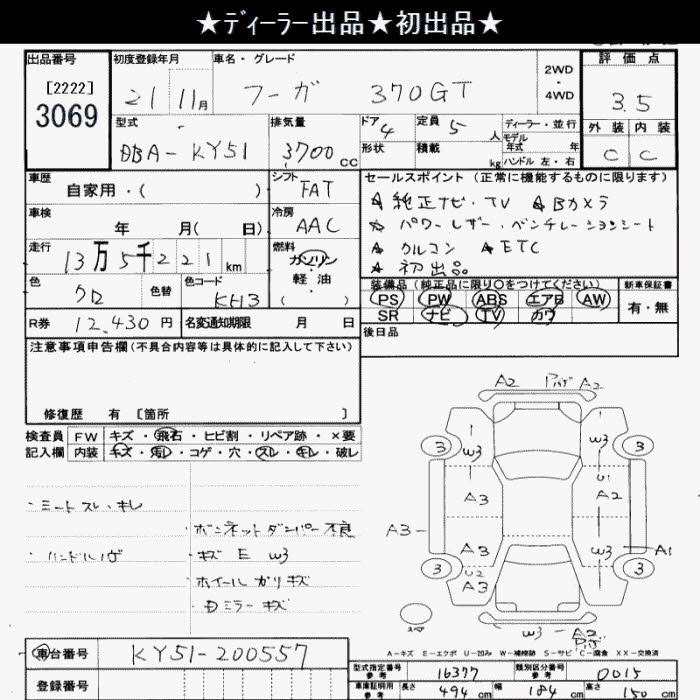 ★ディーラー出品★初出品★
出品番号
[2222]
3069
初度登録年月
21 11月
車名・グレード
フーガ 370GT
2WD
4WD
評価点
3.5
外装 内装
C C
型式
DBA-KY51
排気量
3700cc
ドア
4
形状
定員
5人
積載
kg
ディーラー・並行
モデル
年式 年
ハンドル 左・右
車歴
自家用・( )
シフト
FAT
車検
年 月( 日)
冷房
AAC
走行
13万5千221km
燃料
ガソリン
軽油
( )
色
クロ
色替
色コード
KH3
R券 12,430円
名変通知期限 月 日
セールスポイント (正常に機能するものに限ります)
★純正ナビ・TV ★Bカメラ
★パワーレザー・ベンチレーションシート
★クルコン ★ETC
★初出品
装備品(純正品に限り○をつけてください)
PS PW ABS エアB AW
SR ナビ TV カワ
新車保証書
有・無
後日品
注意事項申告欄(不具合内容等は具体的に記入して下さい)
修復歴 有 [箇所 ]
検査員
記入欄
FW キズ・飛石・ヒビ割・リペア跡・×要
内装 キズ・汚レ・コゲ・穴・スレ・キレ・破レ
・シートスレ・キレ
・ボンネットダンパー不良
・キズ E W3
・ホイールガリキズ
・Dミラーキズ
A2 A2
W3 W3
3 3
U1
A3 A2
A3
A3 W3 A1
3 U2 3
W3 A2
A-キズ E-エクボ U-凹み W-補修跡 S-サビ C-腐食 XX-交換済
車台番号 KY51-200557
登録番号
型式指定番号
参考
16377
類別区分番号
参考
0015
車庫証明用
参考
長さ 494cm 幅 184cm 高さ 150cm